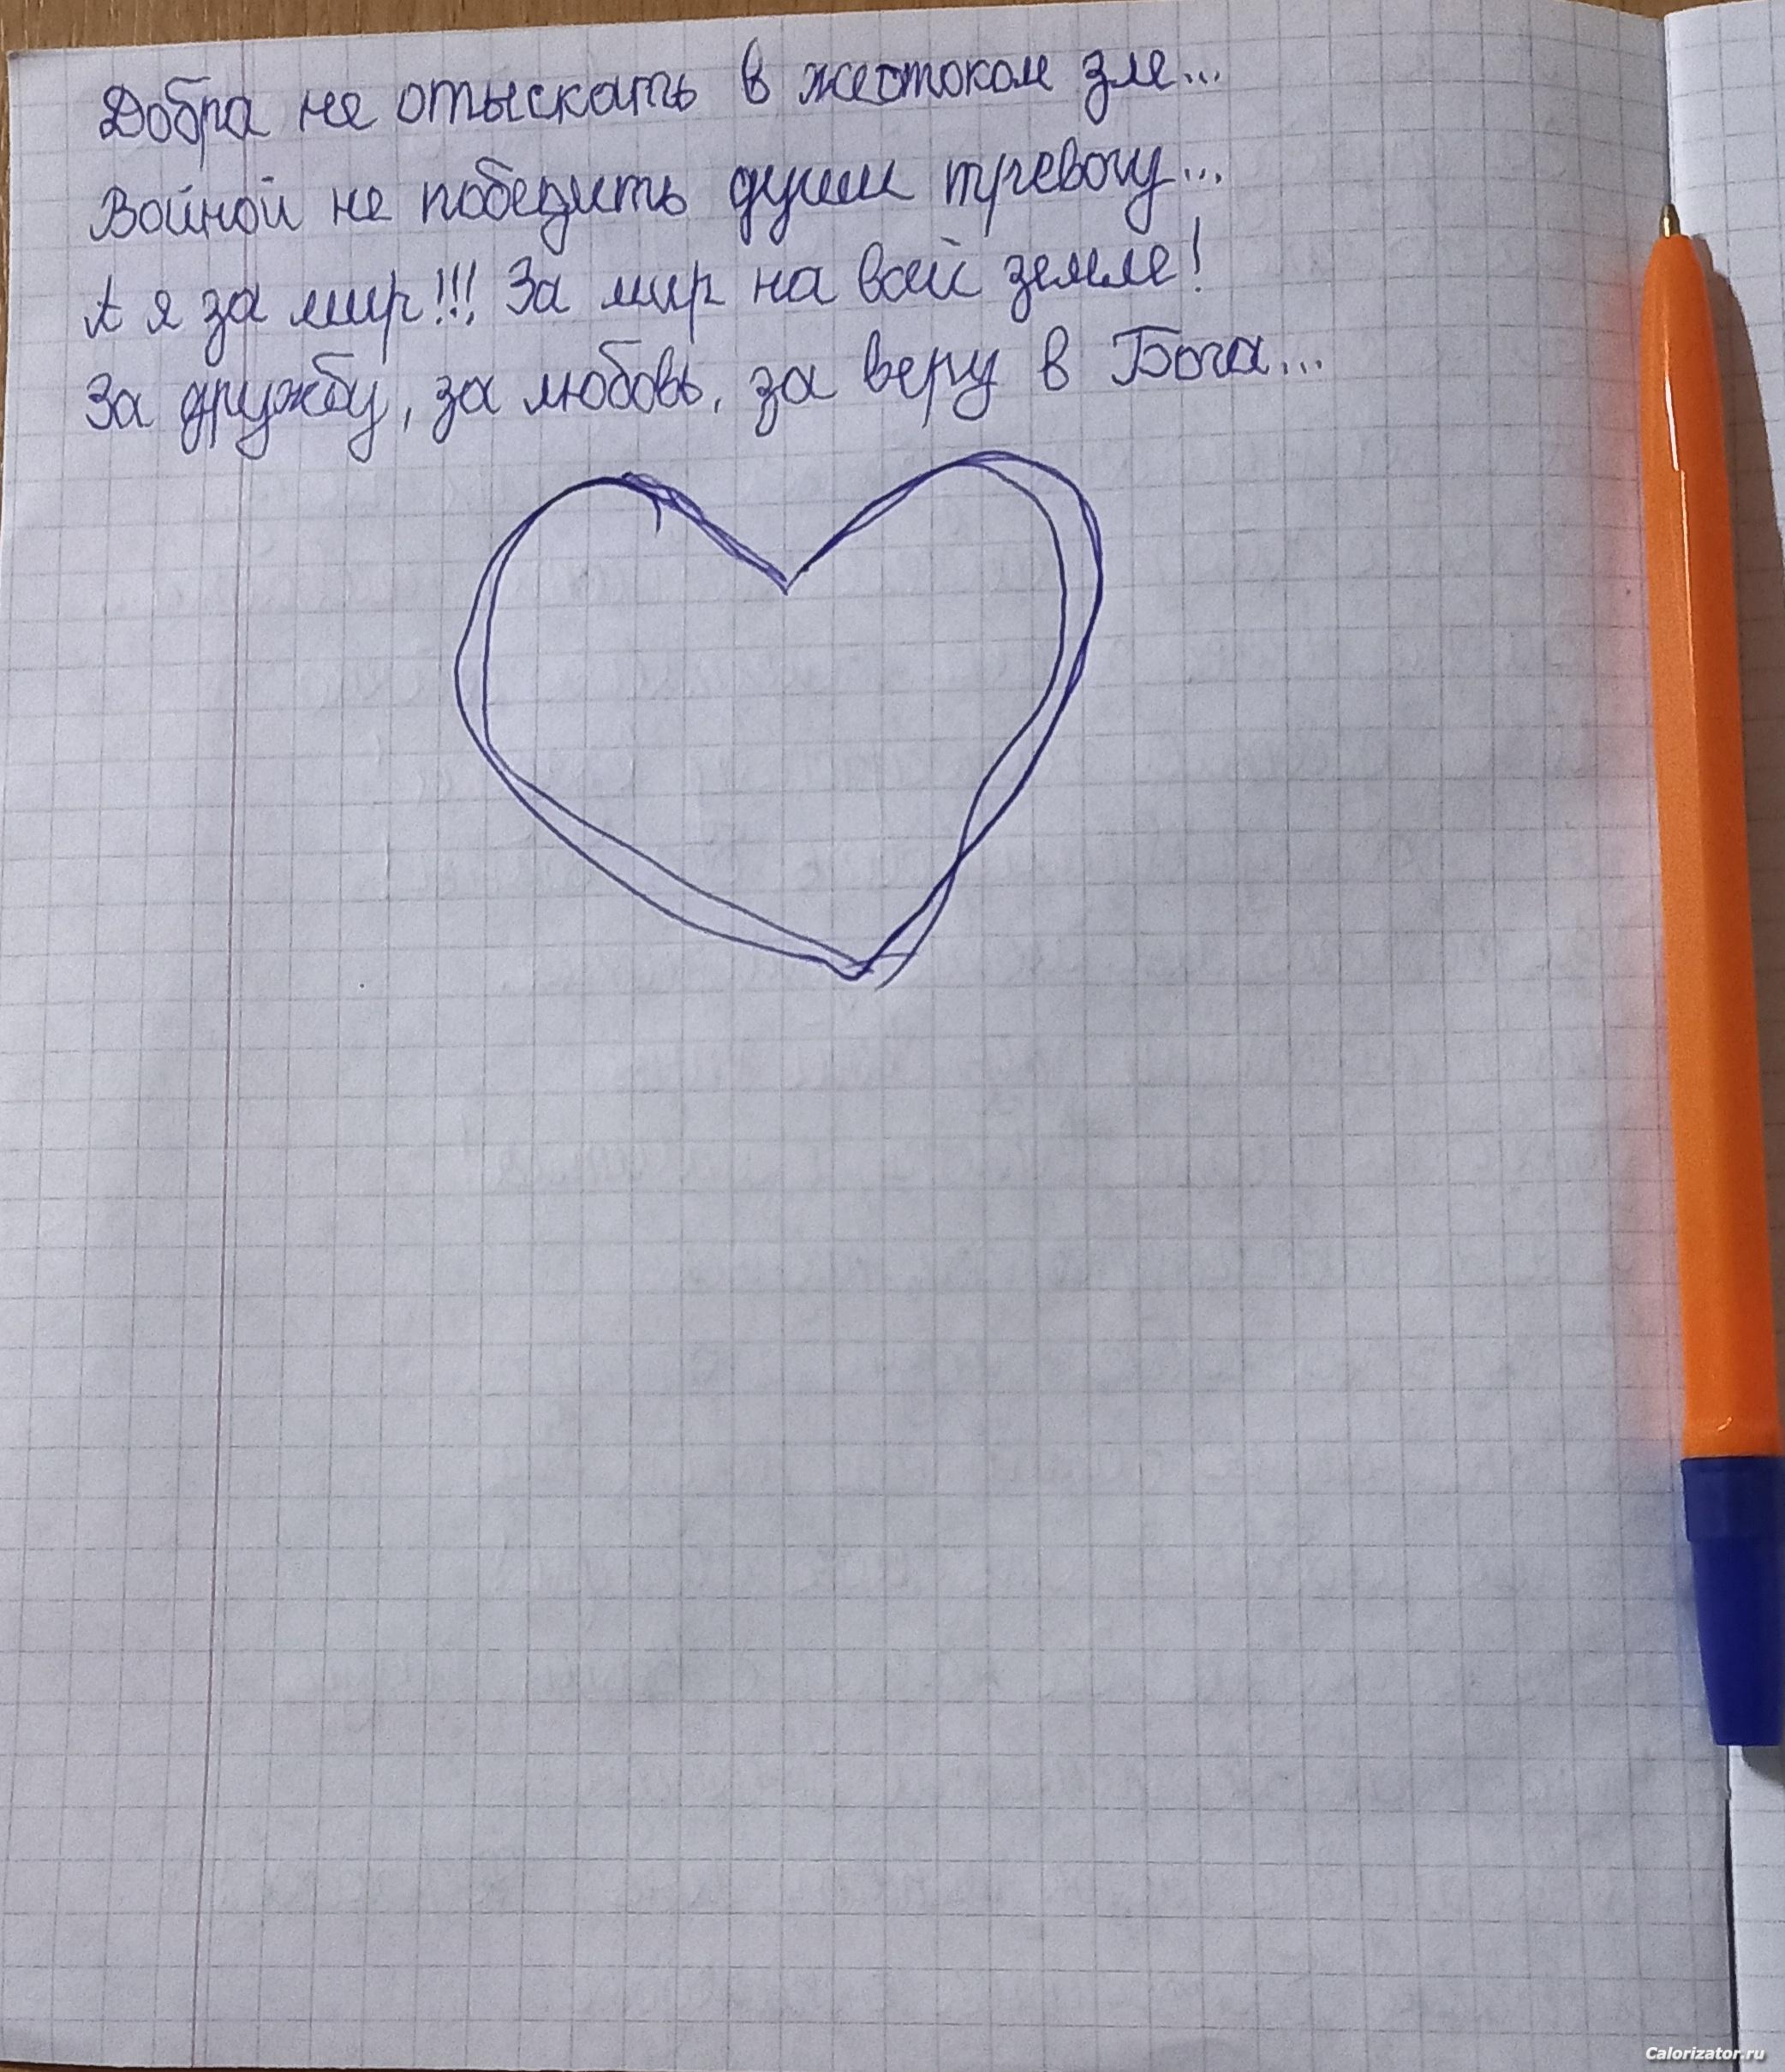 Добра не отыскать в жестоком зле...
Войной не победить души тревогу...
А я за мир!!! За мир на всей земле!
За дружбу, за любовь, за веру в Бога...
Calorizator.ru